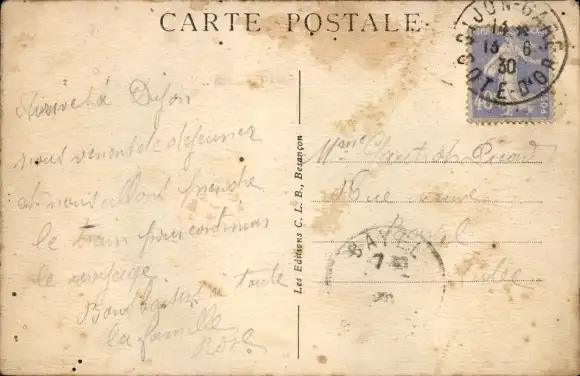 CARTE POSTALE
DIJON-GARE
13 *
13 6
30
CÔTE-D'OR
40
Arrivée à Dijon
nous venons de déjeuner
et nous allons prendre
le train pour continuer
le voyage
Bons baisers à toute
la famille
Rose
Les Editions C. L. B., Besançon
Mme
Picard
Rue
Bayel
Aube
BAYEL
7
30